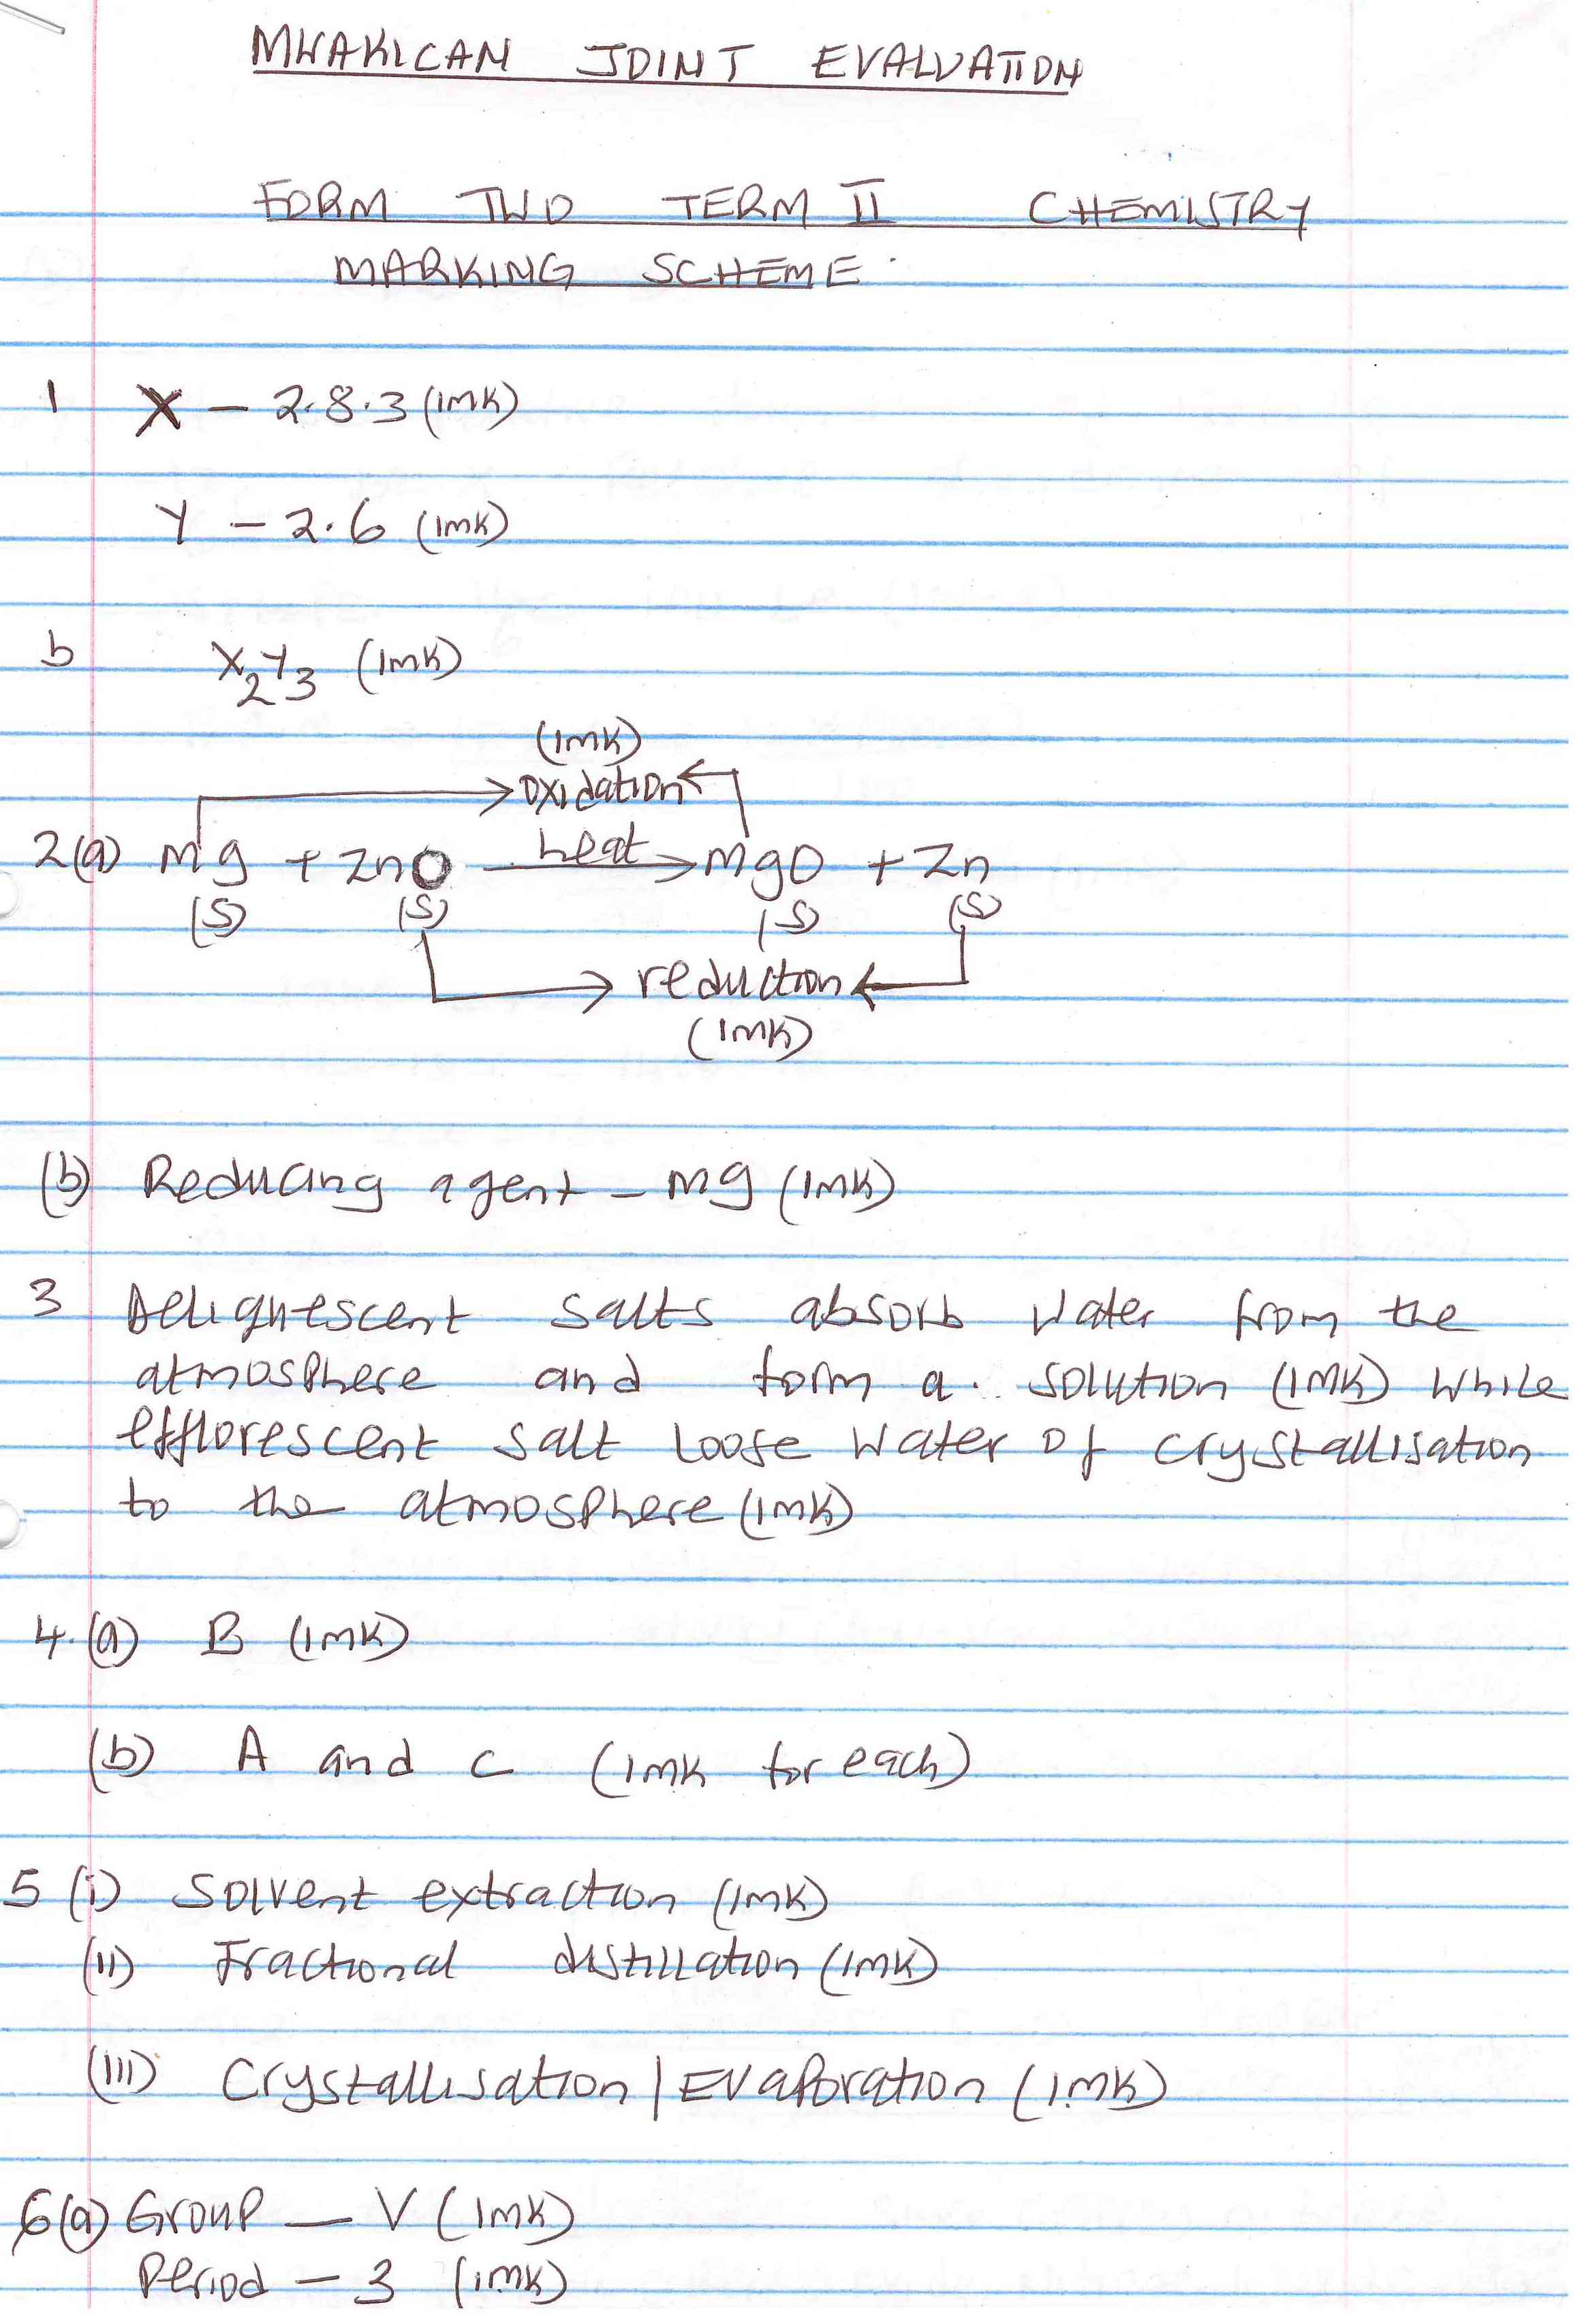 MWAKICAN JOINT EVALUATION
FORM TWO TERM II CHEMISTRY
MARKING SCHEME.
1 X – 2.8.3 (1mk)
Y – 2.6 (1mk)
b X₂Y₃ (1mk)
(1mk)
oxidation
2(a) Mg + ZnO heat → MgO + Zn
(s) (s) (s) (s)
reduction
(1mk)
(b) Reducing agent – Mg (1mk)
3 Deliquescent salts absorb water from the
atmosphere and form a solution (1mk) while
efflorescent salt loose water of crystallisation
to the atmosphere (1mk)
4.(a) B (1mk)
(b) A and C (1mk for each)
5 (i) Solvent extraction (1mk)
(ii) Fractional distillation (1mk)
(iii) Crystallisation | Evaporation (1mk)
6(a) Group – V (1mk)
Period – 3 (1mk)